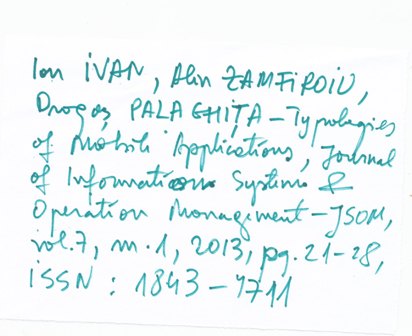 Ion IVAN, Alin ZAMFIROIU,
Dragoș PALAGHIȚA – Typologies
of Mobile Applications, Journal
of Information Systems &
Operation Management – JSOM,
vol.7, nr.1, 2013, pg. 21-28,
ISSN : 1843-4711